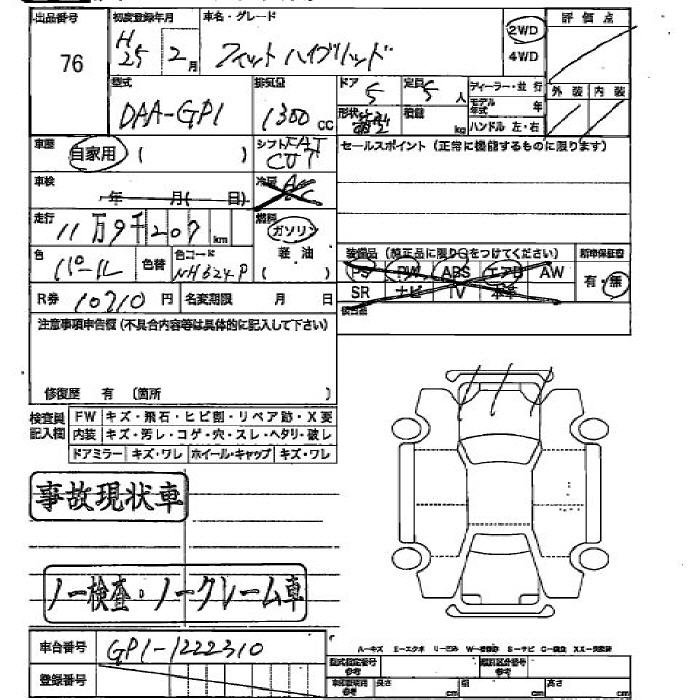 出品番号 初度登録年月 車名・グレード 評価点
76 H25 2月 フィット ハイブリッド 2WD
4WD
型式 排気量 ドア 定員 ディーラー・並行 外装 内装
DAA-GP1 1300cc 5 5人 モデル年式 年
形状 積載 kg ハンドル 左・右
車歴 自家用 ( ) シフト FAT セールスポイント (正常に機能するものに限ります)
CVT
車検 年 月( 日) 冷房 AC
走行 11万9千207km 燃料 ガソリン
軽油
( )
色 パール 色替 色コード NH624P
装備品 (純正品に限り○をつけてください) 新車保証書
PS PW ABS エアB AW 有・無
SR ナビ TV 本革
R券 10710円 名変期限 月 日
注意事項申告欄 (不具合内容等は具体的に記入して下さい)
修復歴 有 〔箇所 〕
検査員記入欄 FW キズ・飛石・ヒビ割・リペア跡・X要
内装 キズ・汚レ・コゲ・穴・スレ・ヘタリ・破レ
ドアミラー キズ・ワレ ホイール・キャップ キズ・ワレ
事故現状車
ノー検査・ノークレーム車
車台番号 GP1-1222310
登録番号
A=キズ E=エクボ U=凹み W=補修跡 S=サビ C=腐食 XX=交換済
型式指定番号 参考 類別区分番号 参考
参考 長さ cm 幅 cm 高さ cm